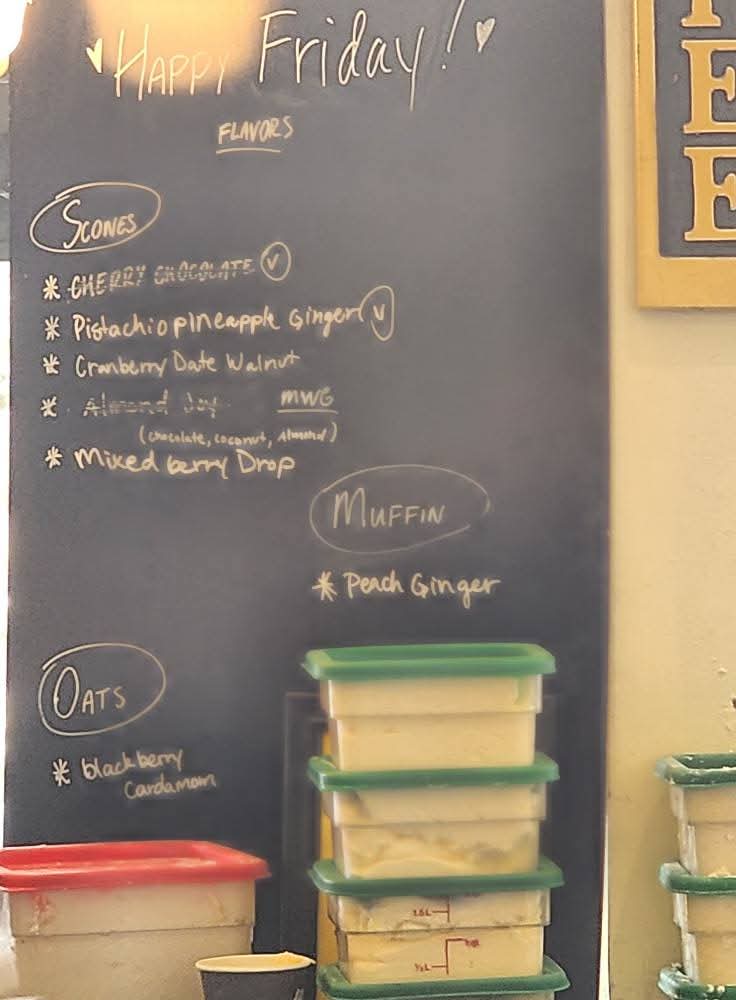 Happy Friday!
FLAVORS
SCONES
* CHERRY CHOCOLATE V
* Pistachio pineapple Ginger V
* Cranberry Date Walnut
* Almond Joy MWG
(chocolate, coconut, Almond)
* Mixed berry Drop
MUFFIN
* Peach Ginger
OATS
* blackberry
Cardamom
E
E
1.5L
½L